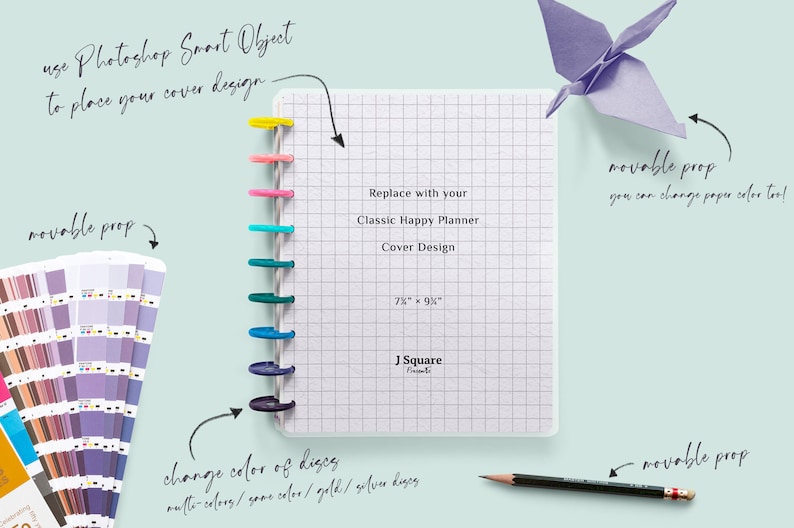 use Photoshop Smart Object
to place your cover design
movable prop
you can change paper color too!
movable prop
Replace with your
Classic Happy Planner
Cover Design
7¾” × 9¾”
J Square
Presents
change color of discs
multi-colors/ same color/ gold/ silver discs
movable prop
PANTONE
Celebrating